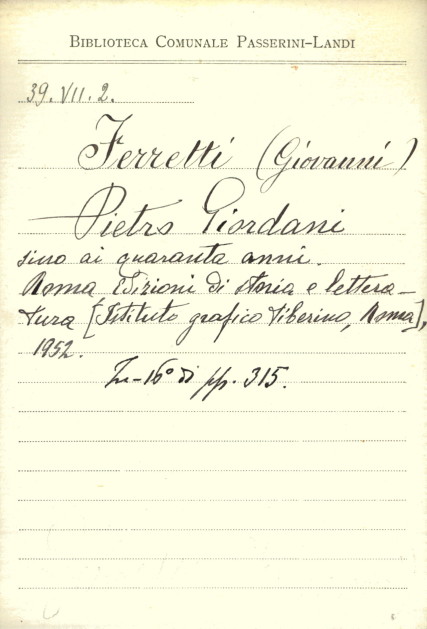 BIBLIOTECA COMUNALE PASSERINI-LANDI
39. VII. 2.
Ferretti (Giovanni)
Pietro Giordani
sino ai quaranta anni.
Roma, Edizioni di storia e lettera-
tura [Istituto grafico Tiberino, Roma],
1952.
In-16° di pp. 315.